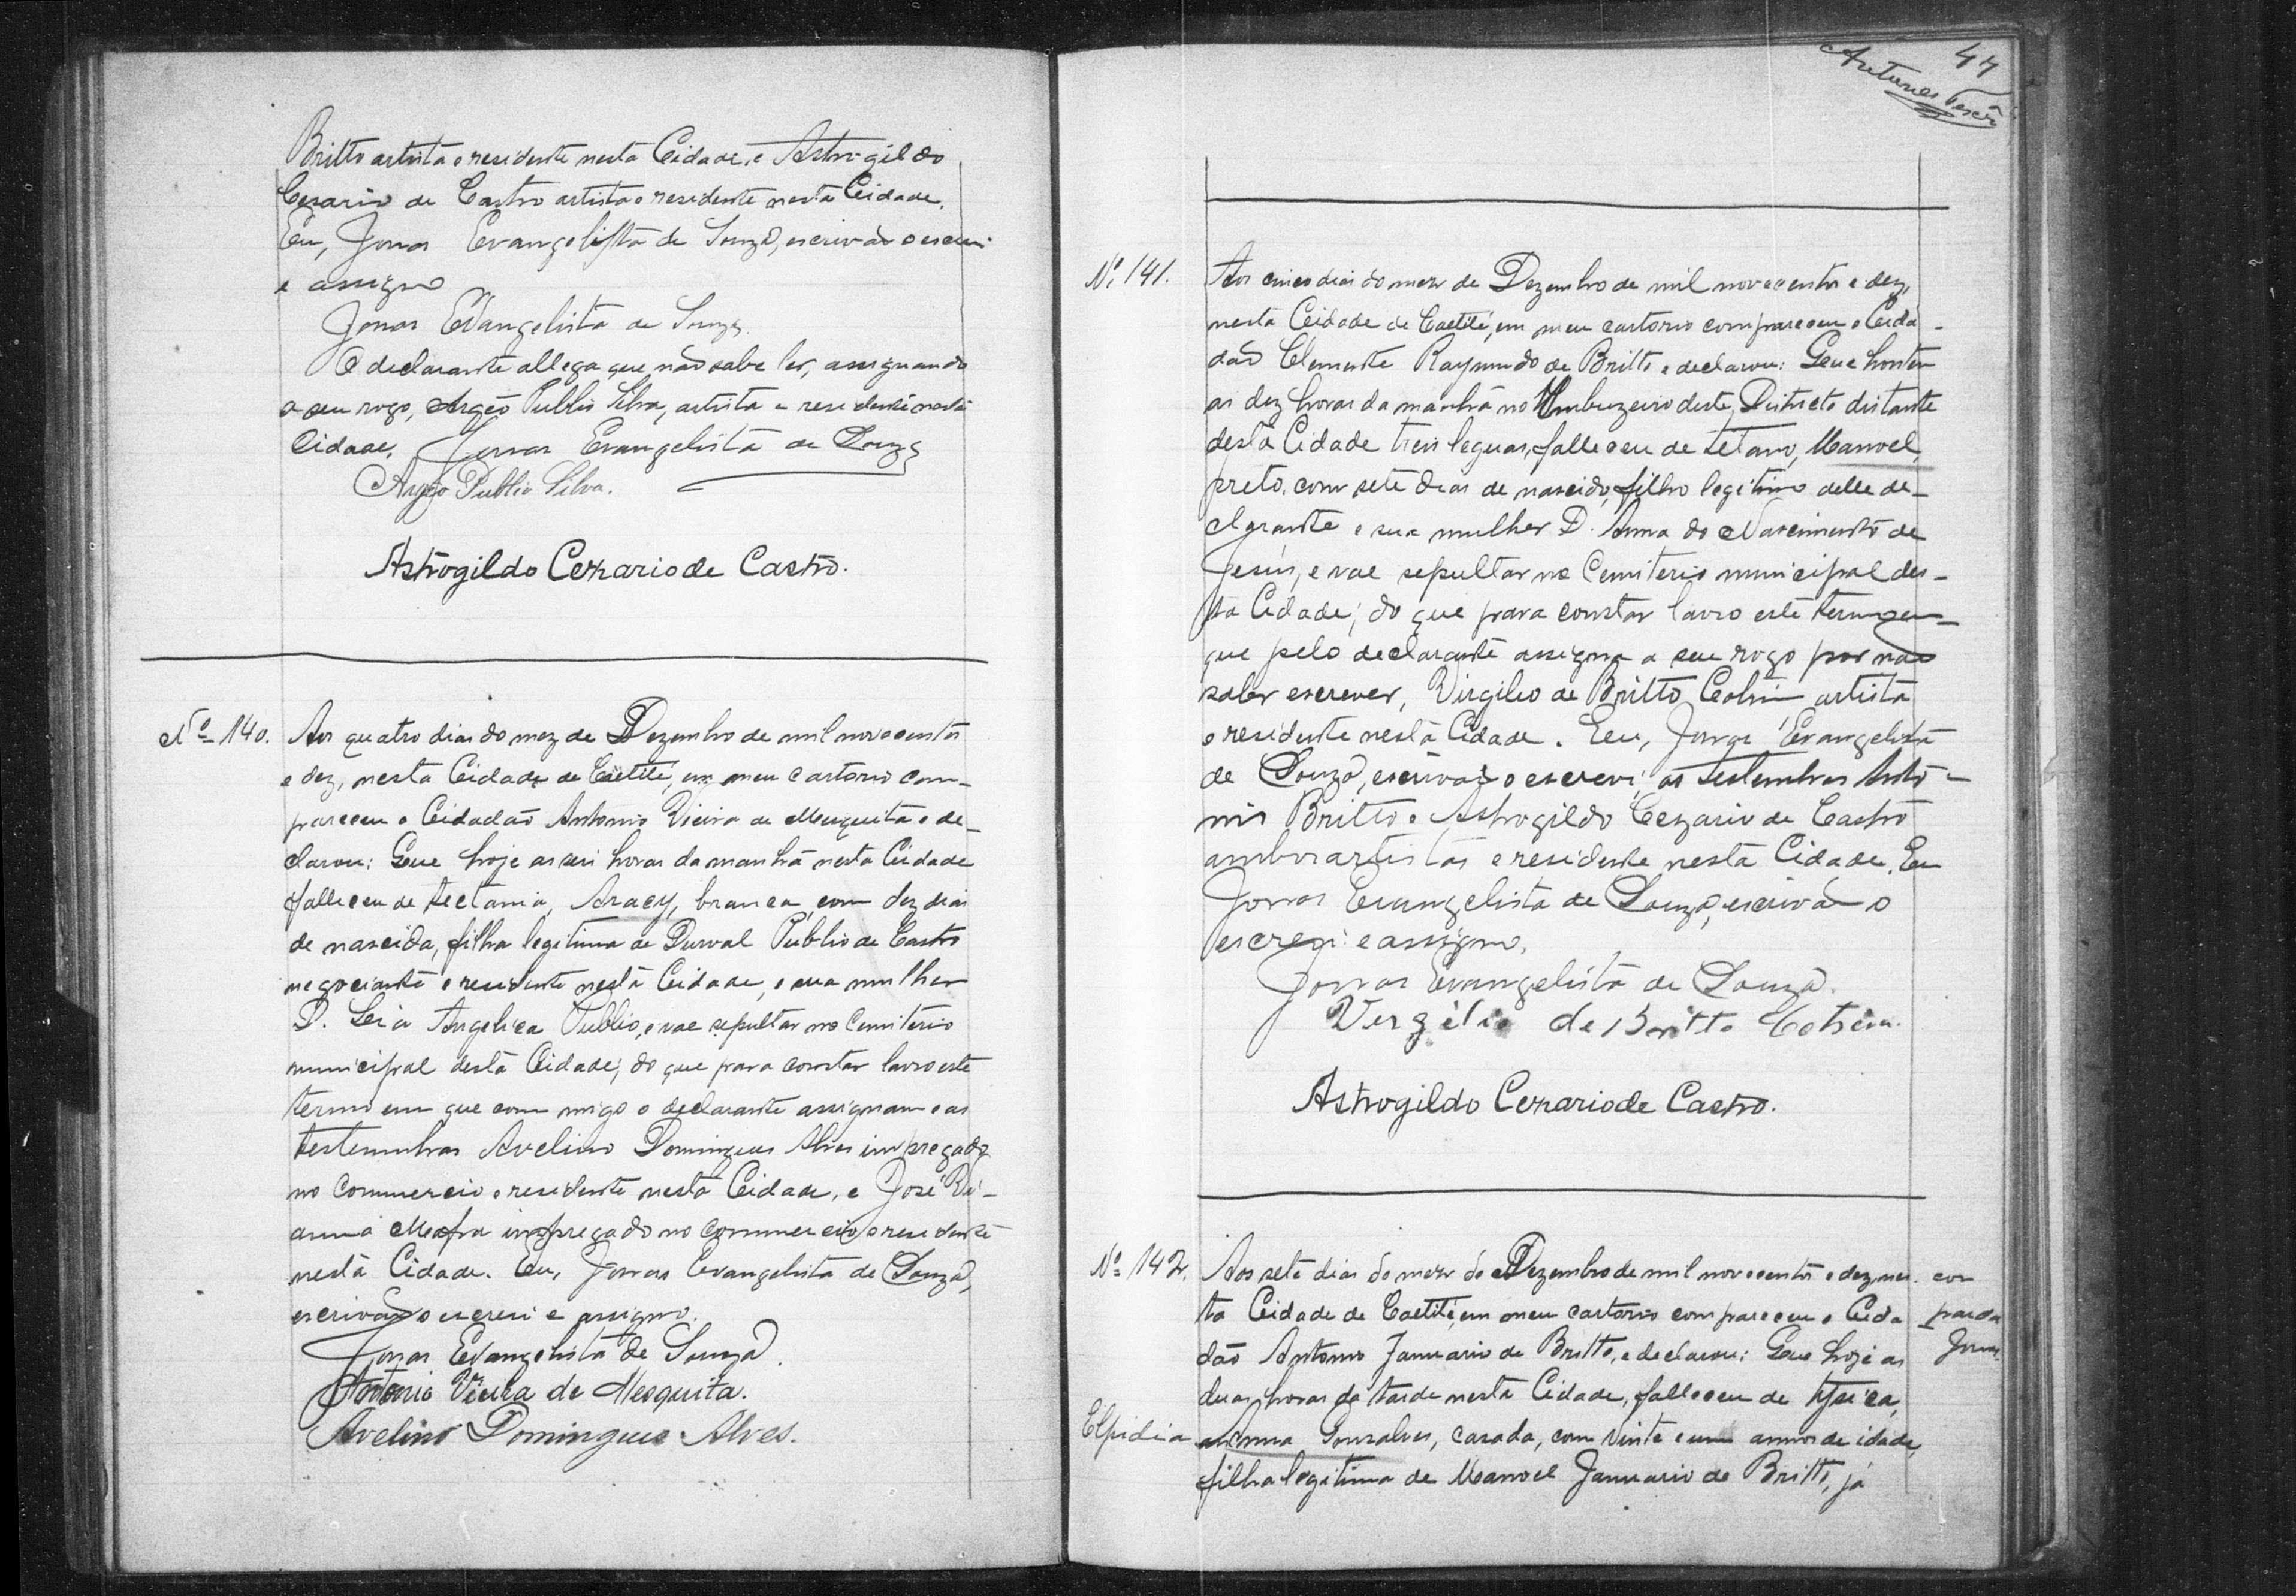 Britto artista e residente nesta Cidade, e Astrogildo
Cesario de Castro artista e residente nesta Cidade.
Eu, Jonas Evangelista de Souza, escrivão o escrevi
e assigno
Jonas Evangelista de Souza.
O declarante allega que não sabe ler, assignando
a seu rogo, Argeo Publio Silva, artista e residente nesta
Cidade. Jonas Evangelista de Souza
Argeo Publio Silva.
Astrogildo Cezario de Castro.
Nº 140. Aos quatro dias do mez de Dezembro de mil novecentos
e dez, nesta Cidade de Caetité, em meu cartorio com-
pareceu o Cidadão Antonio Vieira de Mesquita e de-
clarou: Que hoje as seis horas da manhã nesta Cidade
falleceu de tectania, Aracy, branca, com dez dias
de nascida, filha legitima de Durval Publio de Castro
negociante e residente nesta Cidade, e sua mulher
D. Angelica Publio, e vae sepultar no Cemiterio
municipal desta Cidade; do que para constar lavro este
termo em que com migo o declarante assignam e as
testemunhas Avelino Domingues Alves impregado
no Commercio e residente nesta Cidade, e José Vi-
anna Mafra impregado no commercio e residente
nesta Cidade. Eu, Jonas Evangelista de Souza,
escrivão o escrevi e assigno.
Jonas Evangelista de Souza.
Antonio Vieira de Mesquita.
Avelino Domingues Alves.
47
Antunes
Nº 141. Aos cinco dias do mez de Dezembro de mil novecentos e dez,
nesta Cidade de Caetité, em meu cartorio compareceu o Cida-
dão Clemente Raymundo de Britto e declarou: Que hontem
as dez horas da manhã no Umbuzeiro deste Districto distante
desta Cidade treis leguas, falleceu de tetano, Manoel,
preto, com sete dias de nascido, filho legitimo delle de-
clarante e sua mulher D. Anna do Nascimento de
Jesus, e vae sepultar no Cemiterio municipal des-
ta Cidade; do que para constar lavro este termo em-
que pelo declarante assigna a seu rogo por não
saber escrever, Virgilio de Britto Cotrim artista
e residente nesta Cidade. Eu, Jonas Evangelista
de Souza, escrivão o escrevi; as testemunhas Anto-
nio Britto e Astrogildo Cezario de Castro
ambos artistas e residente nesta Cidade. Eu
Jonas Evangelista de Souza, escrivão o
escrevi e assigno.
Jonas Evangelista de Souza.
Vergilio de Britto Cotrim.
Astrogildo Cezario de Castro.
Nº 142. Aos sete dias do mez de Dezembro de mil novecentos e dez, nes- cor
ta Cidade de Caetité, em meu cartorio compareceu o Cida- parda
dão Antonio Januario de Britto, e declarou: Que hoje as Jonas
duas horas da tarde nesta Cidade, falleceu de tysica,
Elpidia Anna Gonsalves, casada, com vinte e um annos de idade,
filha legitima de Manoel Januario de Britto, já